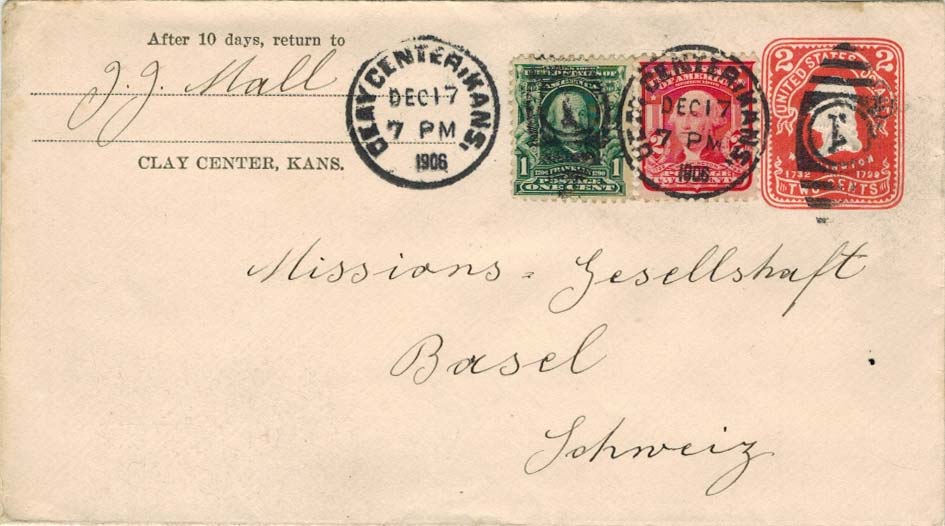 After 10 days, return to
J. J. Mall
CLAY CENTER, KANS.
CLAY CENTER, KANS.
DEC 17
7 PM
1906
FRANKLIN
1 POSTAGE 1
ONE CENT
CLAY CENTER, KANS.
DEC 17
7 PM
1906
2 UNITED STATES POSTAGE 2
WASHINGTON
1732 1799
TWO CENTS
Missions = Gesellshaft
Basel
Schweiz